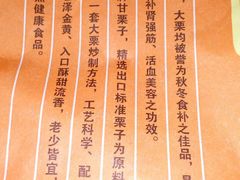 ，大栗均被誉为秋冬食补之佳品，是
补肾强筋、活血美容之功效。
甘栗子，精选出口标准栗子为原料
一套大栗炒制方法，工艺科学、配
泽金黄、入口酥甜流香，老少皆宜，
然健康食品。